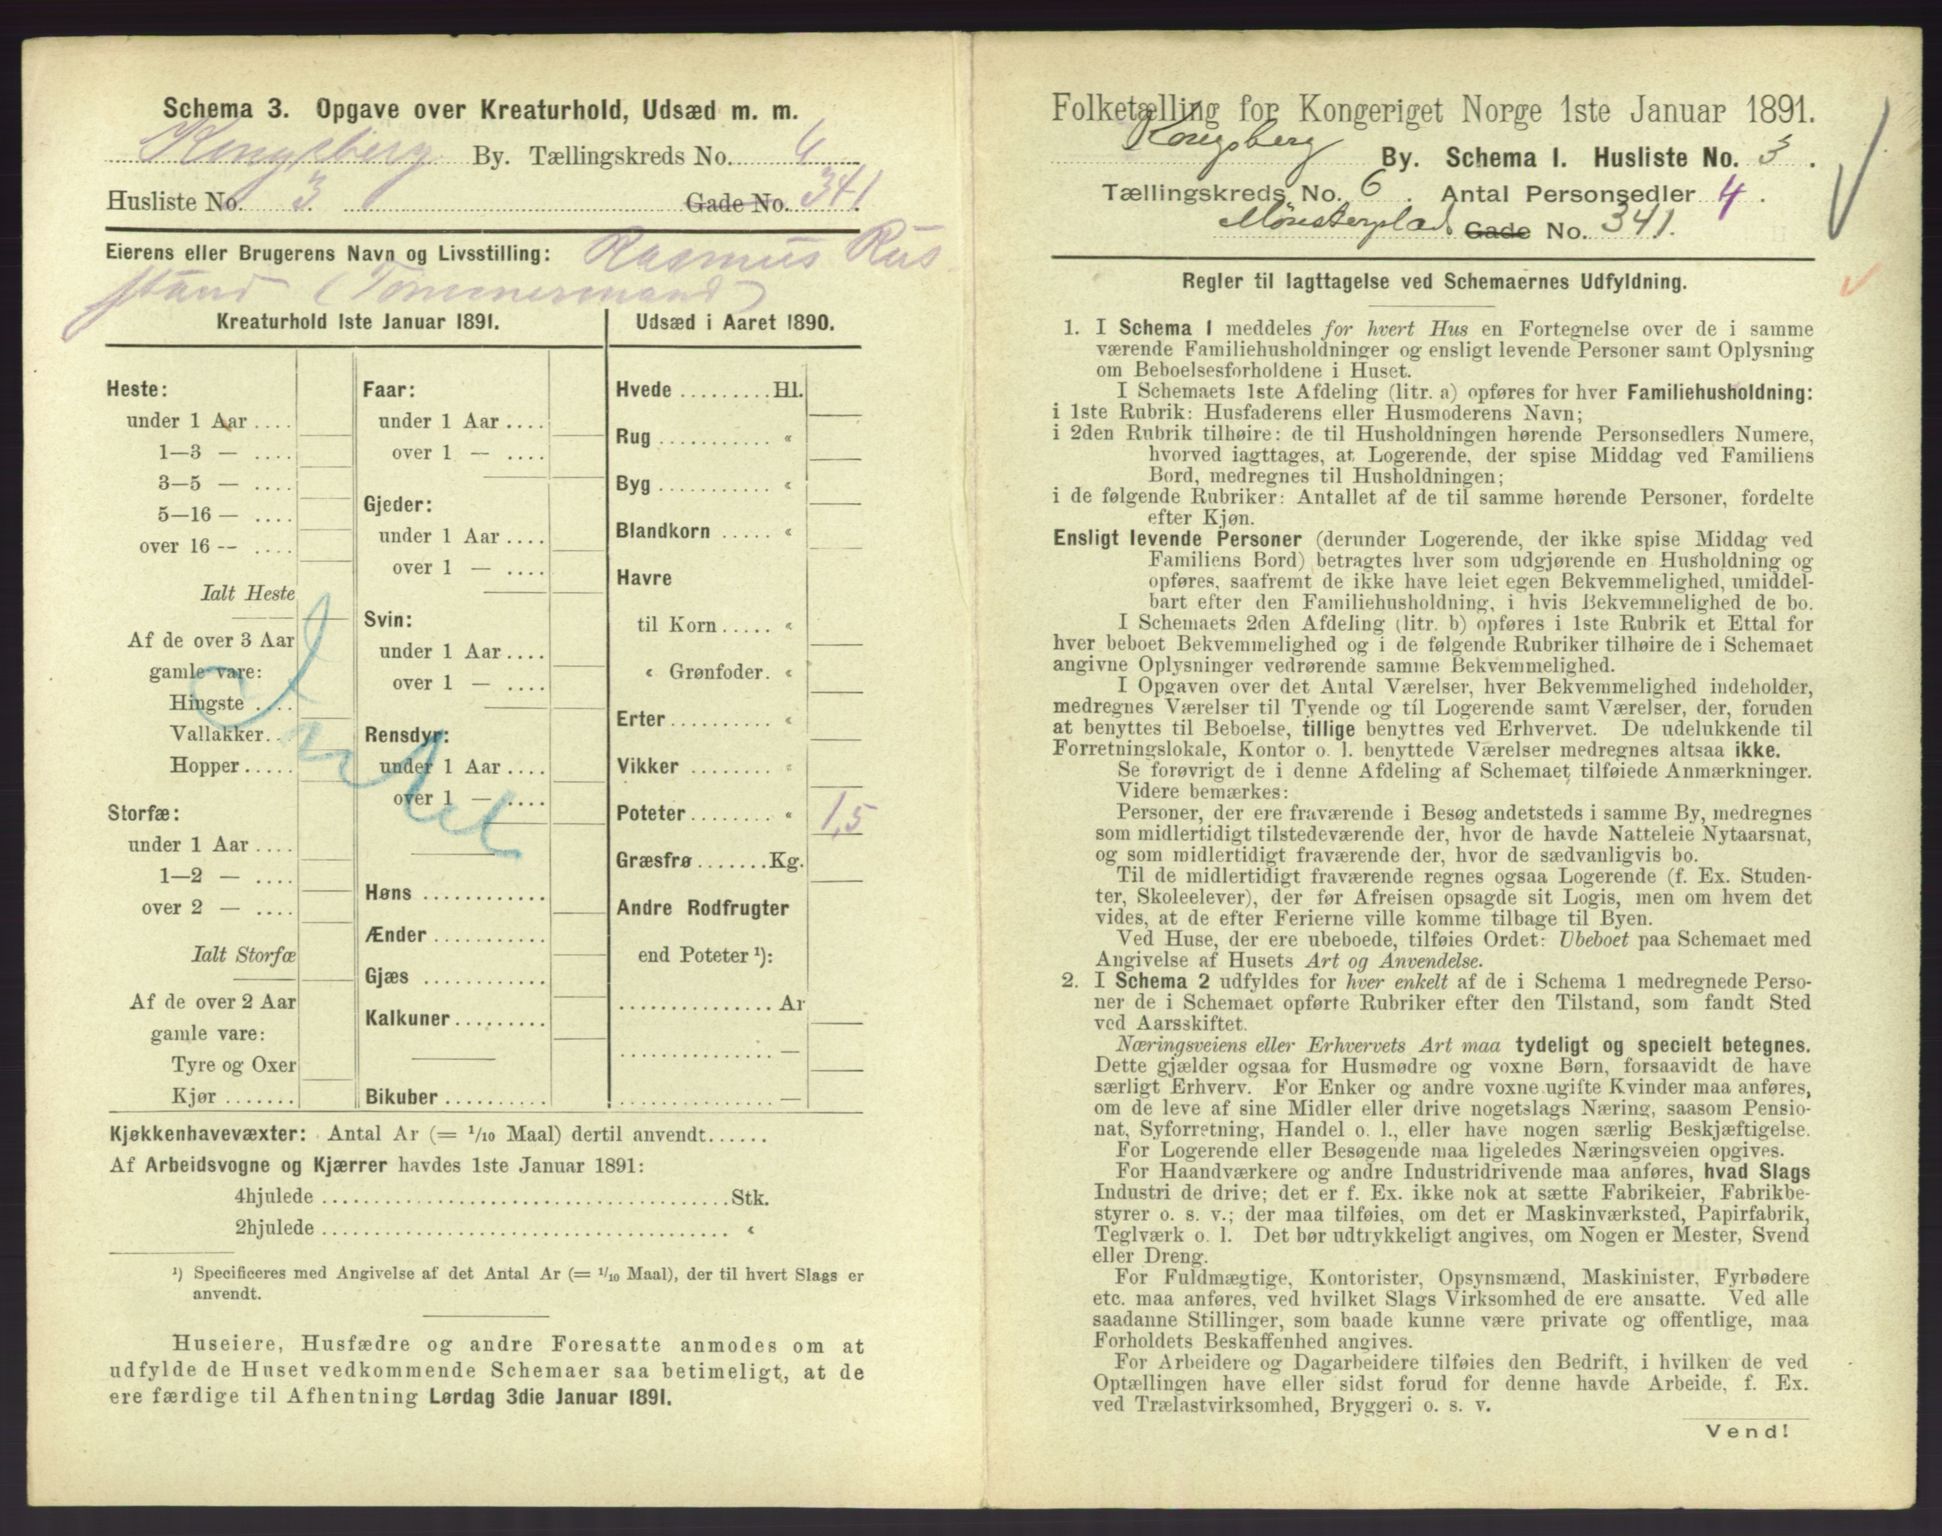 Schema 3. Opgave over Kreaturhold, Udsæd m. m.
Kongsberg By. Tællingskreds No. 6
Husliste No. 3. Gade No. 341
Eierens eller Brugerens Navn og Livsstilling: Rasmus Rus
stand (Tømmermand)
Kreaturhold 1ste Januar 1891.
Heste:
under 1 Aar ....
1—3 — ....
3—5 — ....
5—16 — ....
over 16 -- ....
Ialt Heste
Af de over 3 Aar
gamle vare:
Hingste ....
Vallakker...
Hopper.....
Storfæ:
under 1 Aar ....
1—2 — ....
over 2 — ....
Ialt Storfæ
Af de over 2 Aar
gamle vare:
Tyre og Oxer
Kjør .......
Faar:
under 1 Aar ....
over 1 — ....
Gjeder:
under 1 Aar ....
over 1 — ....
Svin:
under 1 Aar ....
over 1 — ....
Rensdyr:
under 1 Aar ....
over 1 — ....
Høns ............
Ænder ...........
Gjæs ............
Kalkuner.........
Bikuber ..........
Udsæd i Aaret 1890.
Hvede .........Hl.
Rug ........... «
Byg ........... «
Blandkorn ..... «
Havre
til Korn ..... «
« Grønfoder. «
Erter .......... «
Vikker ......... «
Poteter........ « 1,5
Græsfrø .......Kg.
Andre Rodfrugter
end Poteter ¹):
............... Ar
............... —
............... —
Kjøkkenhavevæxter: Antal Ar (= 1/10 Maal) dertil anvendt......
Af Arbeidsvogne og Kjærrer havdes 1ste Januar 1891:
4hjulede ......................................Stk.
2hjulede ...................................... «
¹) Specificeres med Angivelse af det Antal Ar (= 1/10 Maal), der til hvert Slags er
anvendt.
Huseiere, Husfædre og andre Foresatte anmodes om at
udfylde de Huset vedkommende Schemaer saa betimeligt, at de
ere færdige til Afhentning Lørdag 3die Januar 1891.
Folketælling for Kongeriget Norge 1ste Januar 1891.
Kongsberg By. Schema I. Husliste No. 3.
Tællingskreds No. 6. Antal Personsedler 4.
Mønsterplads Gade No. 341.
Regler til Iagttagelse ved Schemaernes Udfyldning.
1. I Schema 1 meddeles for hvert Hus en Fortegnelse over de i samme
værende Familiehusholdninger og ensligt levende Personer samt Oplysning
om Beboelsesforholdene i Huset.
I Schemaets 1ste Afdeling (litr. a) opføres for hver Familiehusholdning:
i 1ste Rubrik: Husfaderens eller Husmoderens Navn;
i 2den Rubrik tilhøire: de til Husholdningen hørende Personsedlers Numere,
hvorved iagttages, at Logerende, der spise Middag ved Familiens
Bord, medregnes til Husholdningen;
i de følgende Rubriker: Antallet af de til samme hørende Personer, fordelte
efter Kjøn.
Ensligt levende Personer (derunder Logerende, der ikke spise Middag ved
Familiens Bord) betragtes hver som udgjørende en Husholdning og
opføres, saafremt de ikke have leiet egen Bekvemmelighed, umiddel-
bart efter den Familiehusholdning, i hvis Bekvemmelighed de bo.
I Schemaets 2den Afdeling (litr. b) opføres i 1ste Rubrik et Ettal for
hver beboet Bekvemmelighed og i de følgende Rubriker tilhøire de i Schemaet
angivne Oplysninger vedrørende samme Bekvemmelighed.
I Opgaven over det Antal Værelser, hver Bekvemmelighed indeholder,
medregnes Værelser til Tyende og til Logerende samt Værelser, der, foruden
at benyttes til Beboelse, tillige benyttes ved Erhvervet. De udelukkende til
Forretningslokale, Kontor o. l. benyttede Værelser medregnes altsaa ikke.
Se forøvrigt de i denne Afdeling af Schemaet tilføiede Anmærkninger.
Videre bemærkes:
Personer, der ere fraværende i Besøg andetsteds i samme By, medregnes
som midlertidigt tilstedeværende der, hvor de havde Natteleie Nytaarsnat,
og som midlertidigt fraværende der, hvor de sædvanligvis bo.
Til de midlertidigt fraværende regnes ogsaa Logerende (f. Ex. Studen-
ter, Skoleelever), der før Afreisen opsagde sit Logis, men om hvem det
vides, at de efter Ferierne ville komme tilbage til Byen.
Ved Huse, der ere ubeboede, tilføies Ordet: Ubeboet paa Schemaet med
Angivelse af Husets Art og Anvendelse.
2. I Schema 2 udfyldes for hver enkelt af de i Schema 1 medregnede Perso-
ner de i Schemaet opførte Rubriker efter den Tilstand, som fandt Sted
ved Aarsskiftet.
Næringsveiens eller Erhvervets Art maa tydeligt og specielt betegnes.
Dette gjælder ogsaa for Husmødre og voxne Børn, forsaavidt de have
særligt Erhverv. For Enker og andre voxne ugifte Kvinder maa anføres,
om de leve af sine Midler eller drive nogetslags Næring, saasom Pensio-
nat, Syforretning, Handel o. l., eller have nogen særlig Beskjæftigelse.
For Logerende eller Besøgende maa ligeledes Næringsveien opgives.
For Haandværkere og andre Industridrivende maa anføres, hvad Slags
Industri de drive; det er f. Ex. ikke nok at sætte Fabrikeier, Fabrikbe-
styrer o. s. v.; der maa tilføies, om det er Maskinværksted, Papirfabrik,
Teglværk o. l. Det bør udtrykkeligt angives, om Nogen er Mester, Svend
eller Dreng.
For Fuldmægtige, Kontorister, Opsynsmænd, Maskinister, Fyrbødere
etc. maa anføres, ved hvilket Slags Virksomhed de ere ansatte. Ved alle
saadanne Stillinger, som baade kunne være private og offentlige, maa
Forholdets Beskaffenhed angives.
For Arbeidere og Dagarbeidere tilføies den Bedrift, i hvilken de ved
Optællingen have eller sidst forud for denne havde Arbeide, f. Ex.
ved Trælastvirksomhed, Bryggeri o. s. v.
Vend!